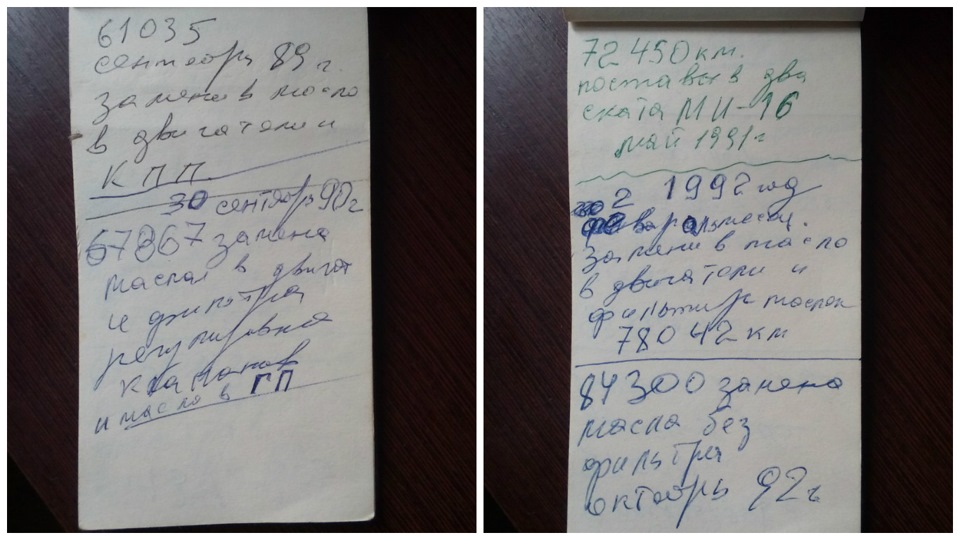 61035
сентябрь 89 г.
заменив масло
в двигатели и
КПП.
30 сентябрь 90г.
67867 замена
масла в двигат
и фильтра
регулировка
клапанов
и масло в ГП
72450км.
поставив два
ската МИ-16
май 1991г
2 1992 год
февраль месяц.
Заменив масло
в двигатели и
фильтир маслен
78042км
84300 замена
масла без
фильтра
октябрь 92г